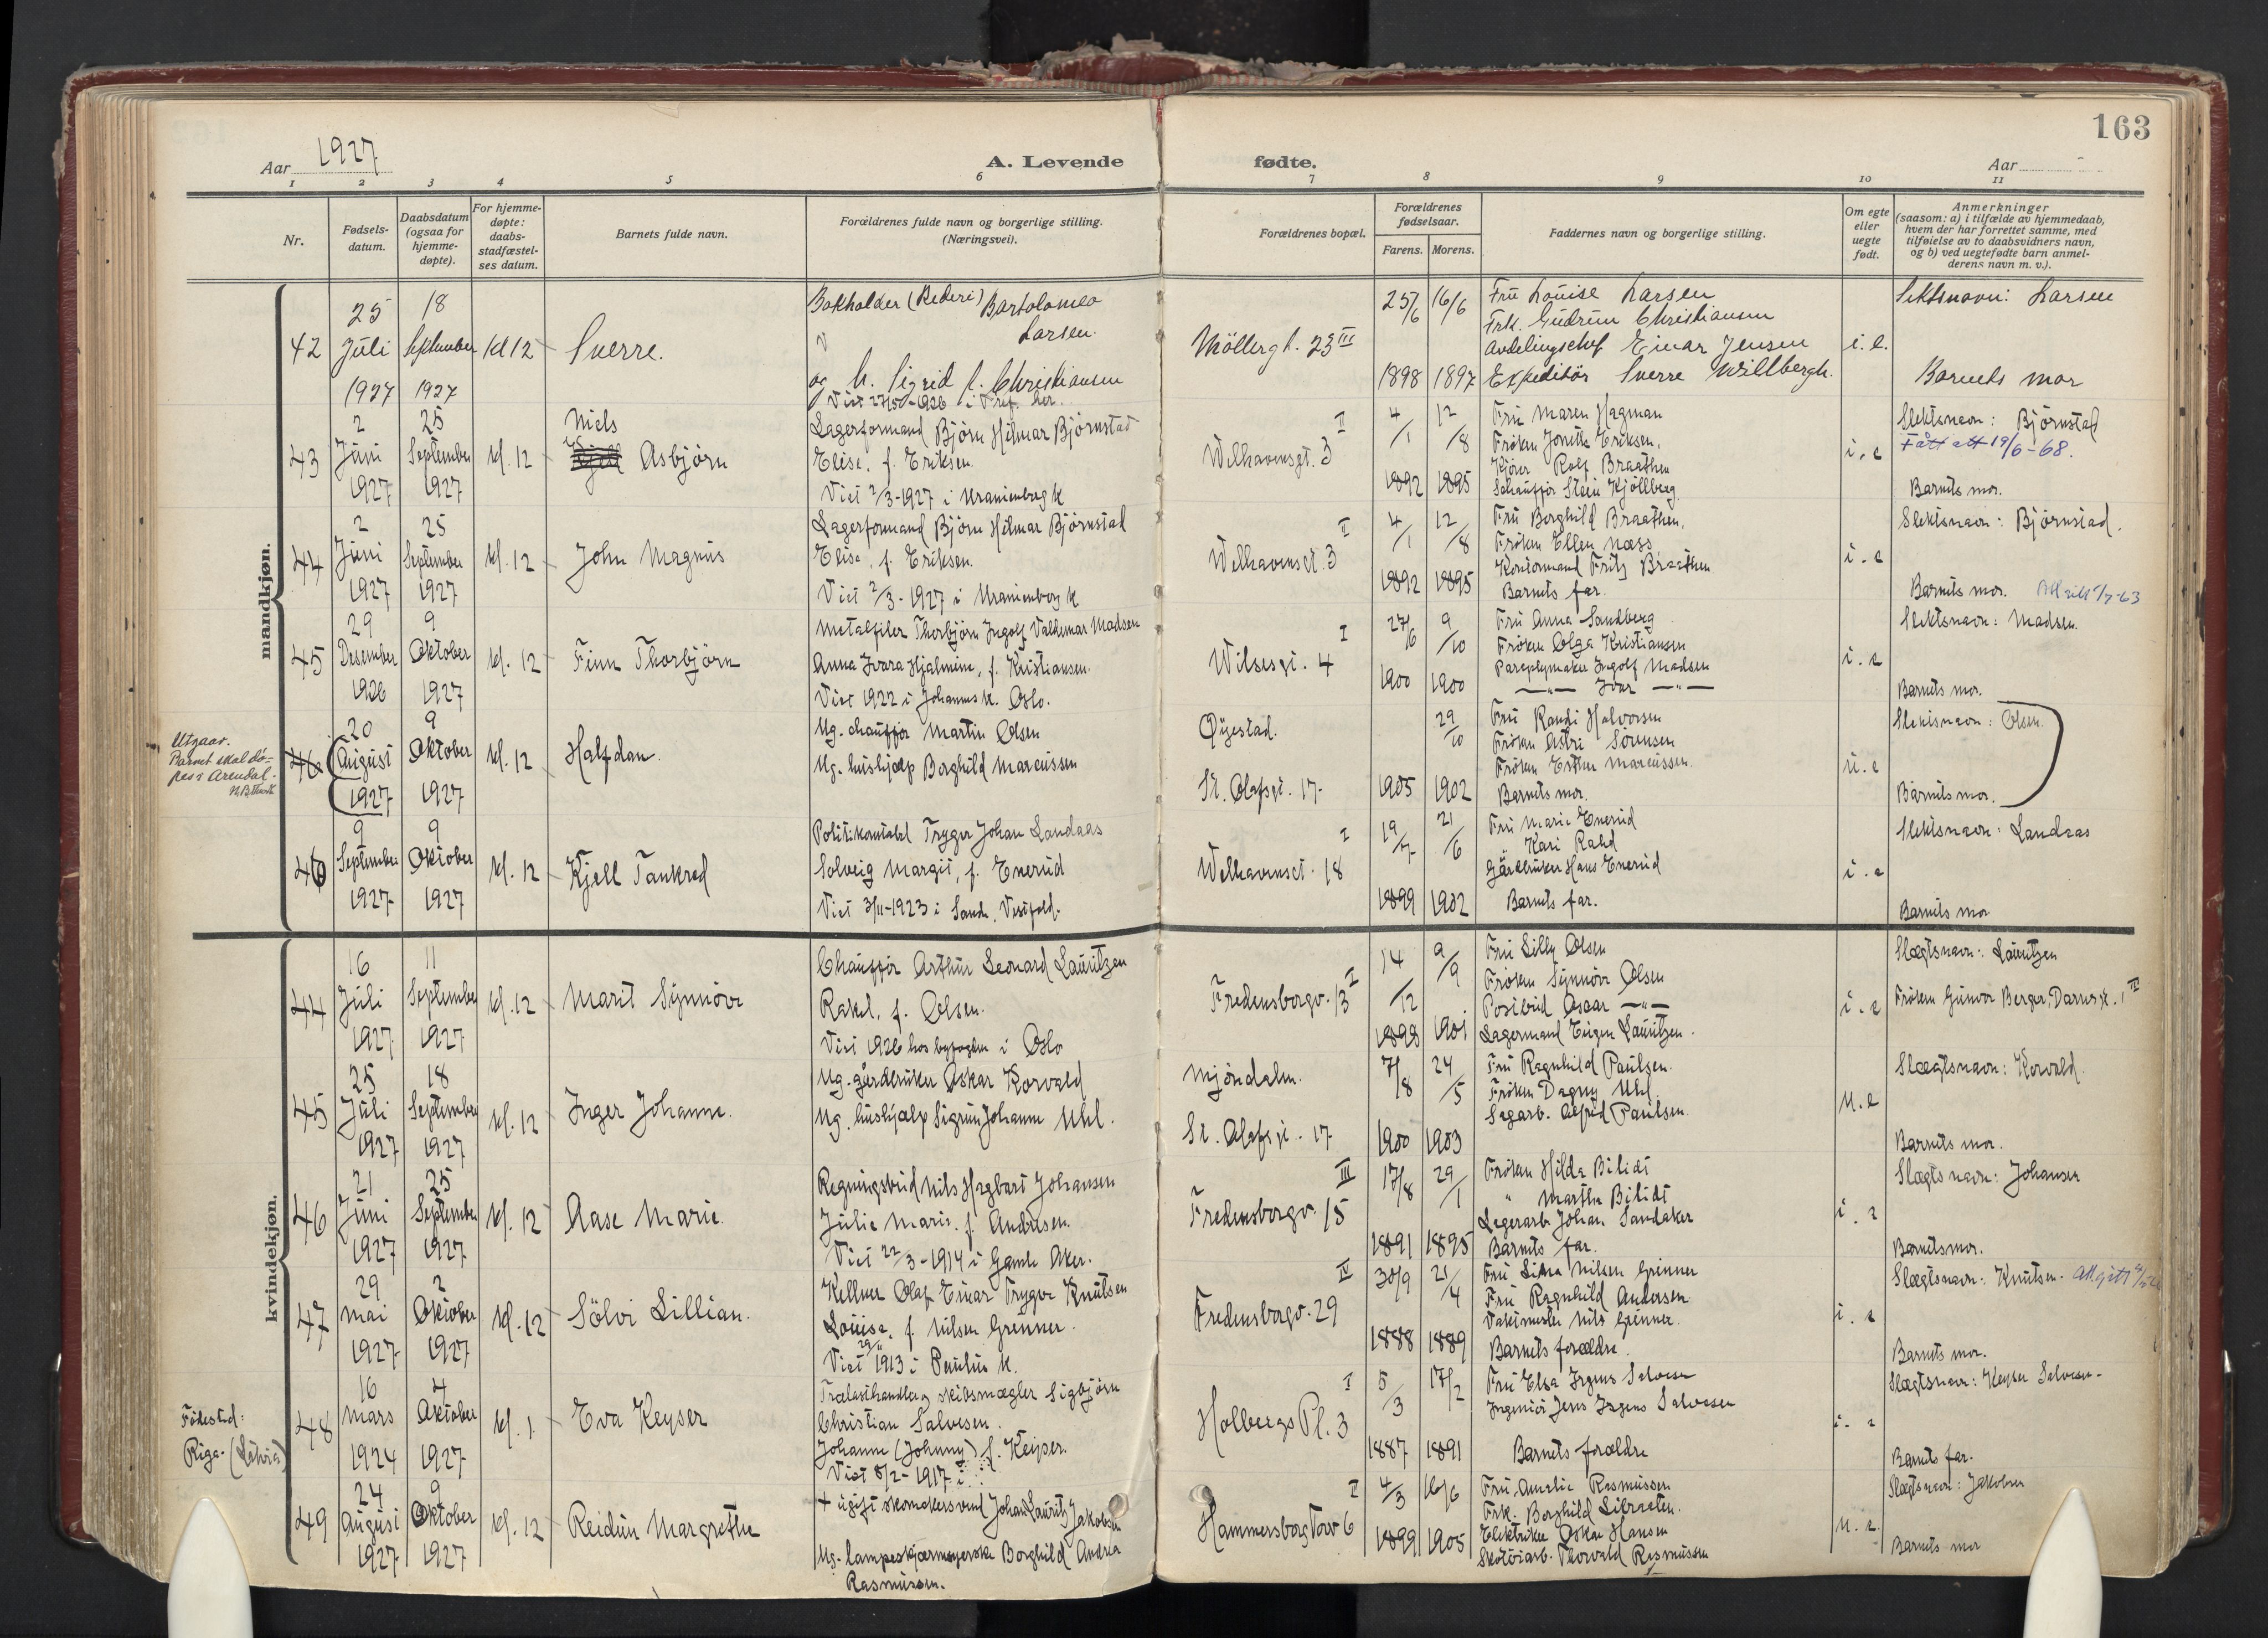 163
Aar 1927
A. Levende
fødte.
Aar
1 2 3 4 5 6 7 8 9 10 11
Nr.
Fødsels-
datum.
Daabsdatum
(ogsaa for
hjemme-
døpte).
For hjemme-
døpte:
daabs-
stadfæstel-
ses datum.
Barnets fulde navn.
Forældrenes fulde navn og borgerlige stilling.
(Næringsvei).
Forældrenes bopæl.
Forældrenes
fødselsaar.
Farens. Morens.
Faddernes navn og borgerlige stilling.
Om egte
eller
uegte
født.
Anmerkninger
(saasom: a) i tilfælde av hjemmedaab,
hvem der har forrettet samme, med
tilføielse av to daabsvidners navn,
og b) ved uegtefødte barn anmel-
derens navn m. v.).
mandkjøn.
42
25
Juli
1927
18
September
1927
Kl 12
Sverre.
Bokholder (Rederi) Bartolomeo
Larsen.
og h. Sigrid f. Christiansen
Viet 27/5-1926 i Tref. her.
Møllerg t. 23 III
25/6 16/6
1898 1897
Fru Louise Larsen
Frk. Gudrun Christiansen
Avdelingschef Einar Jensen
Expeditør Sverre Willbergh.
i. e.
Slektsnavn: Larsen
Barnets mor
43
2
Juni
1927
25
September
1927
kl. 12
Niels
Kjell Asbjørn
Lagerformand Bjørn Hilmar Bjørnstad
Elise, f. Eriksen.
Viet 2/3-1927 i Uranienborg K
Welhavensgt. 3 II
4/1 12/8
1892 1895
Fru Maren Hagman
Frøken Jonette Eriksen.
Kjører Rolf Braathen
Schauffør Stein Kjøllberg
i. e
Slektsnavn: Bjørnstad
Fått att 19/6-68.
Barnets mor.
44
2
Juni
1927
25
September
1927
kl. 12
John Magnus
Lagerformand Bjørn Hilmar Bjørnstad
Elise, f. Eriksen.
Viet 2/3-1927 i Uranienborg K
Welhavensgt. 3 II
4/1 12/8
1892 1895
Fru Borghild Braathen.
Frøken Ellen Næss
Kontormand Fritz Braathen
Barnets far.
i. e
Slektsnavn: Bjørnstad.
Barnets mor.
45
29
Desember
1926
9
Oktober
1927
kl. 12
Finn Thorbjørn
Metalfiler Thorbjørn Ingolf Valdemar Madsen
Anna Ivara Hjalmine, f. Kristiansen.
Viet 1922 i Johannes K. Oslo.
Wilsesgt. 4 I
27/6 9/10
1900 1900
Fru Anna Sandberg
Frøken Olga Kristiansen
Paraplymaker Ingolf Madsen
—"— Ivar —"—
i. e
Slektsnavn: Madsen
Barnets mor.
Utgaar.
Barnet skal dø-
pes i Arendal.
46
20
August
1927
9
Oktober
1927
kl. 12
Halfdan.
Ug. chauffør Martin Olsen
Ug. hushjælp Borghild Marcussen
Øyestad.
St. Olafsgt. 17
29/10
1905 1902
Fru Randi Halvorsen
Frøken Astri Sørensen
Frøken Esther Marcussen.
Barnets mor.
u. e
Slektsnavn: Olsen.
Barnets mor.
46
9
September
1927
9
Oktober
1927
kl. 12
Kjell Tankred
Politikonstabel Trygve Johan Landaas
Solveig Margit, f. Enerud
Viet 3/11-1923 i Sande, Vestfold.
Welhavensgt. 18 I
19/7 21/6
1899 1902
Fru Marie Enerud
" Kari Rabd
Gårdbruker Hans Enerud
Barnets far.
i. e
Slektsnavn: Landaas
Barnets mor
kvindekjøn.
44
16
Juli
1927
11
September
1927
kl. 12
Marit Synnøve
Chauffør Arthur Leonard Lauritzen
Rakel, f. Olsen.
Viet 1926 hos byfogden i Oslo
Fredensborgv. 13 I
14/12 9/9
1898 1901
Fru Lilly Olsen
Frøken Synnøve Olsen
Postbud Oscar —"—
Lagermand Eugen Lauritzen.
i. e
Slægtsnavn: Lauritzen
Frøken Gunvor Berger, 1 II
45
25
Juli
1927
18
September
1927
kl. 12
Inger Johanne.
Ug. gårdbruker Oskar Korvald
Ug. hushjælp Sigrun Johanne Uhl.
Mjøndalen.
St. Olafsgt. 17
7/8 24/5
1900 1903
Fru Ragnhild Paulsen.
Frøken Dagny Uhl
Sagarb. Alfred Paulsen
u. e
Slægtsnavn: Korvald.
Barnets mor.
46
21
Juni
1927
25
September
1927
kl. 12
Aase Marie.
Regningsbud Nils Hagbart Johansen
Julie Marie. f. Andresen.
Viet 22/3-1914 i Gamle Aker.
Fredensborgv. 15 III
17/8 29/1
1891 1895
Frøken Hilda Bilidt
" Marthe Bilidt
Lagerarb. Johan Sandaker
Barnets far.
i. e
Slægtsnavn: Johansen
Barnets mor.
47
29
Mai
1927
2
Oktober
1927
kl. 12
Sölvi Lillian.
Kellner Olaf Einar Trygve Knutsen
Louise, f. Nilsen Grenner.
Viet 29/11 1913 i Paulus K.
Fredensborgv. 29 IV
30/9 21/4
1888 1889
Fru Lina Nilsen Grenner
Fru Ragnhild Andersen
Vaktmester Nils Grenner.
Barnets forældre.
i. e
Slægtsnavn: Knutsen.
Barnets mor.
Fødested:
Riga. (Latvia)
48
16
Mars
1924
4
Oktober
1927
kl. 1
Eva Keyser
Trælasthandler og skibsmægler Sigbjørn
Christian Salvesen.
Johanne (Johnny) f. Keyser.
Viet 8/2-1917 i
Holbergs Pl. 3 I
5/3 17/2
1887 1891
Fru Elsa Irgens Salvesen
Ingeniør Jens Irgens Salvesen
Barnets forældre
i. e
Slægtsnavn: Keyser Salvesen.
Barnets far.
49
24
August
1927
9
Oktober
1927
kl. 12
Reidun Margrethe
+ ugift skomakersvend Johan Lauritz Jakobsen
Ug. lampeskjærmsyerske Borghild Andrea
Rasmussen.
Hammersborg Torv 6 I
4/3 16/6
1899 1905
Fru Amalie Rasmussen
Frk. Borghild Libraaten.
Elektriker Oskar Hansen
Skotøiarb. Thorvald Rasmussen
u. e.
Slægtsnavn: Jakobsen
Barnets mor